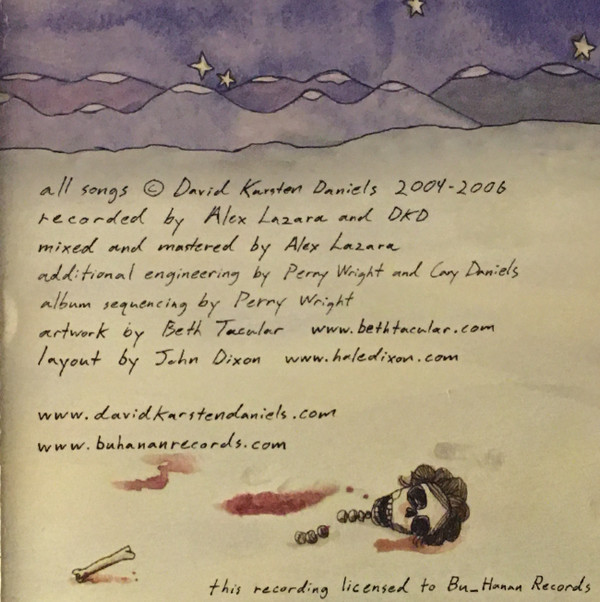 all songs © David Karsten Daniels 2004-2006
recorded by Alex Lazara and DKD
mixed and mastered by Alex Lazara
additional engineering by Perry Wright and Cary Daniels
album sequencing by Perry Wright
artwork by Beth Tacular www.bethtacular.com
layout by John Dixon www.haledixon.com
www.davidkarstendaniels.com
www.buhananrecords.com
this recording licensed to Bu_Hanan Records